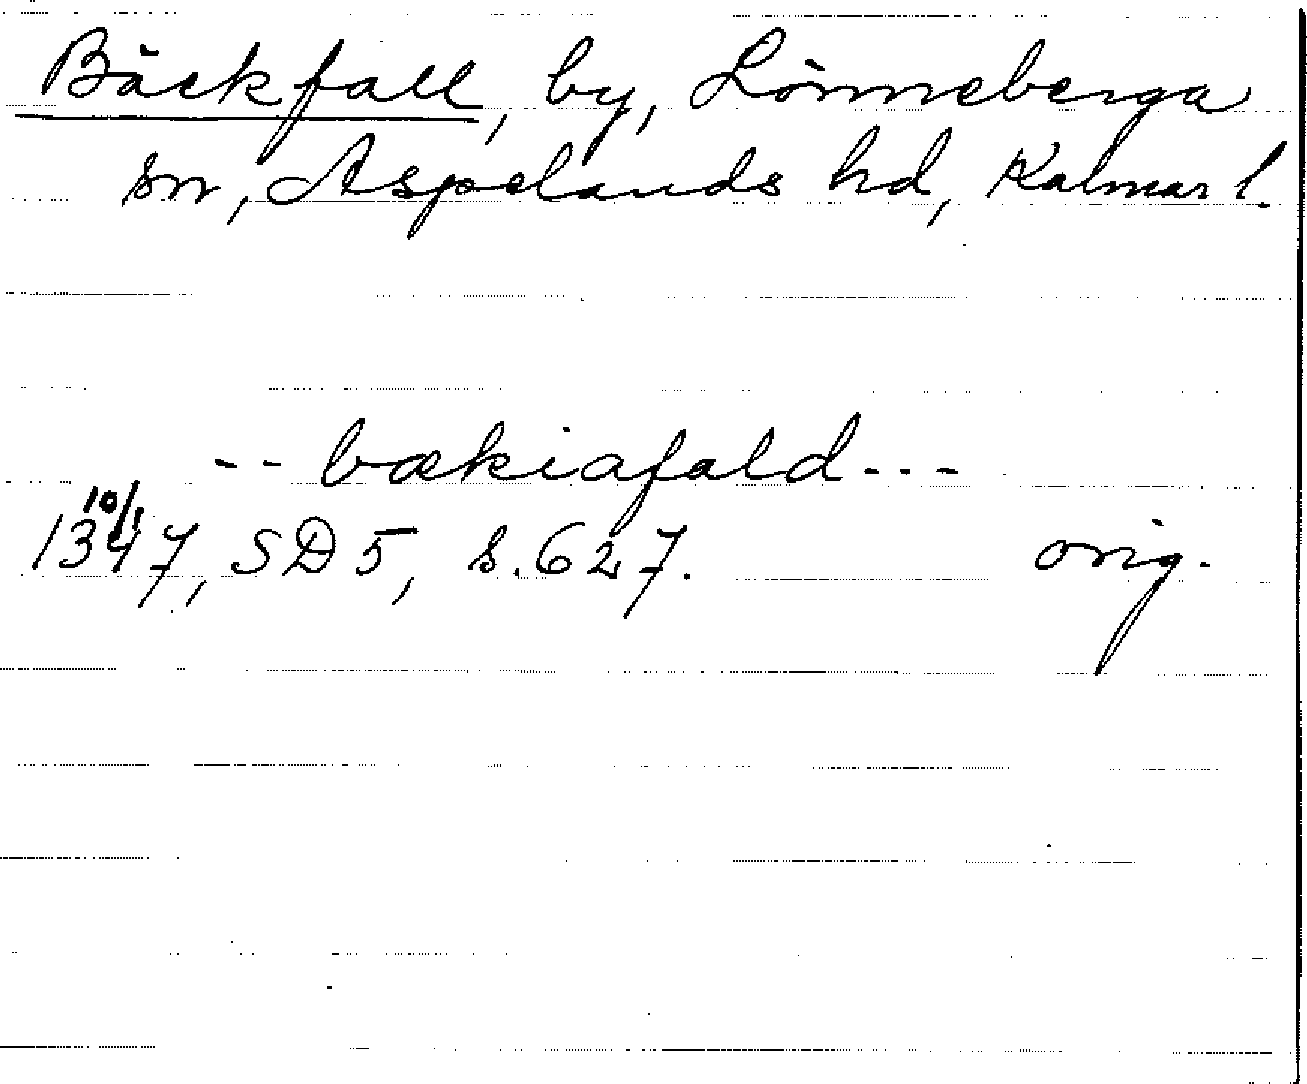 Bäckfall, by, Lönneberga
sn, Aspelands hd, Kalmar l.
-- bækiafald ---
10/1
1347, SD 5, s. 627. orig.